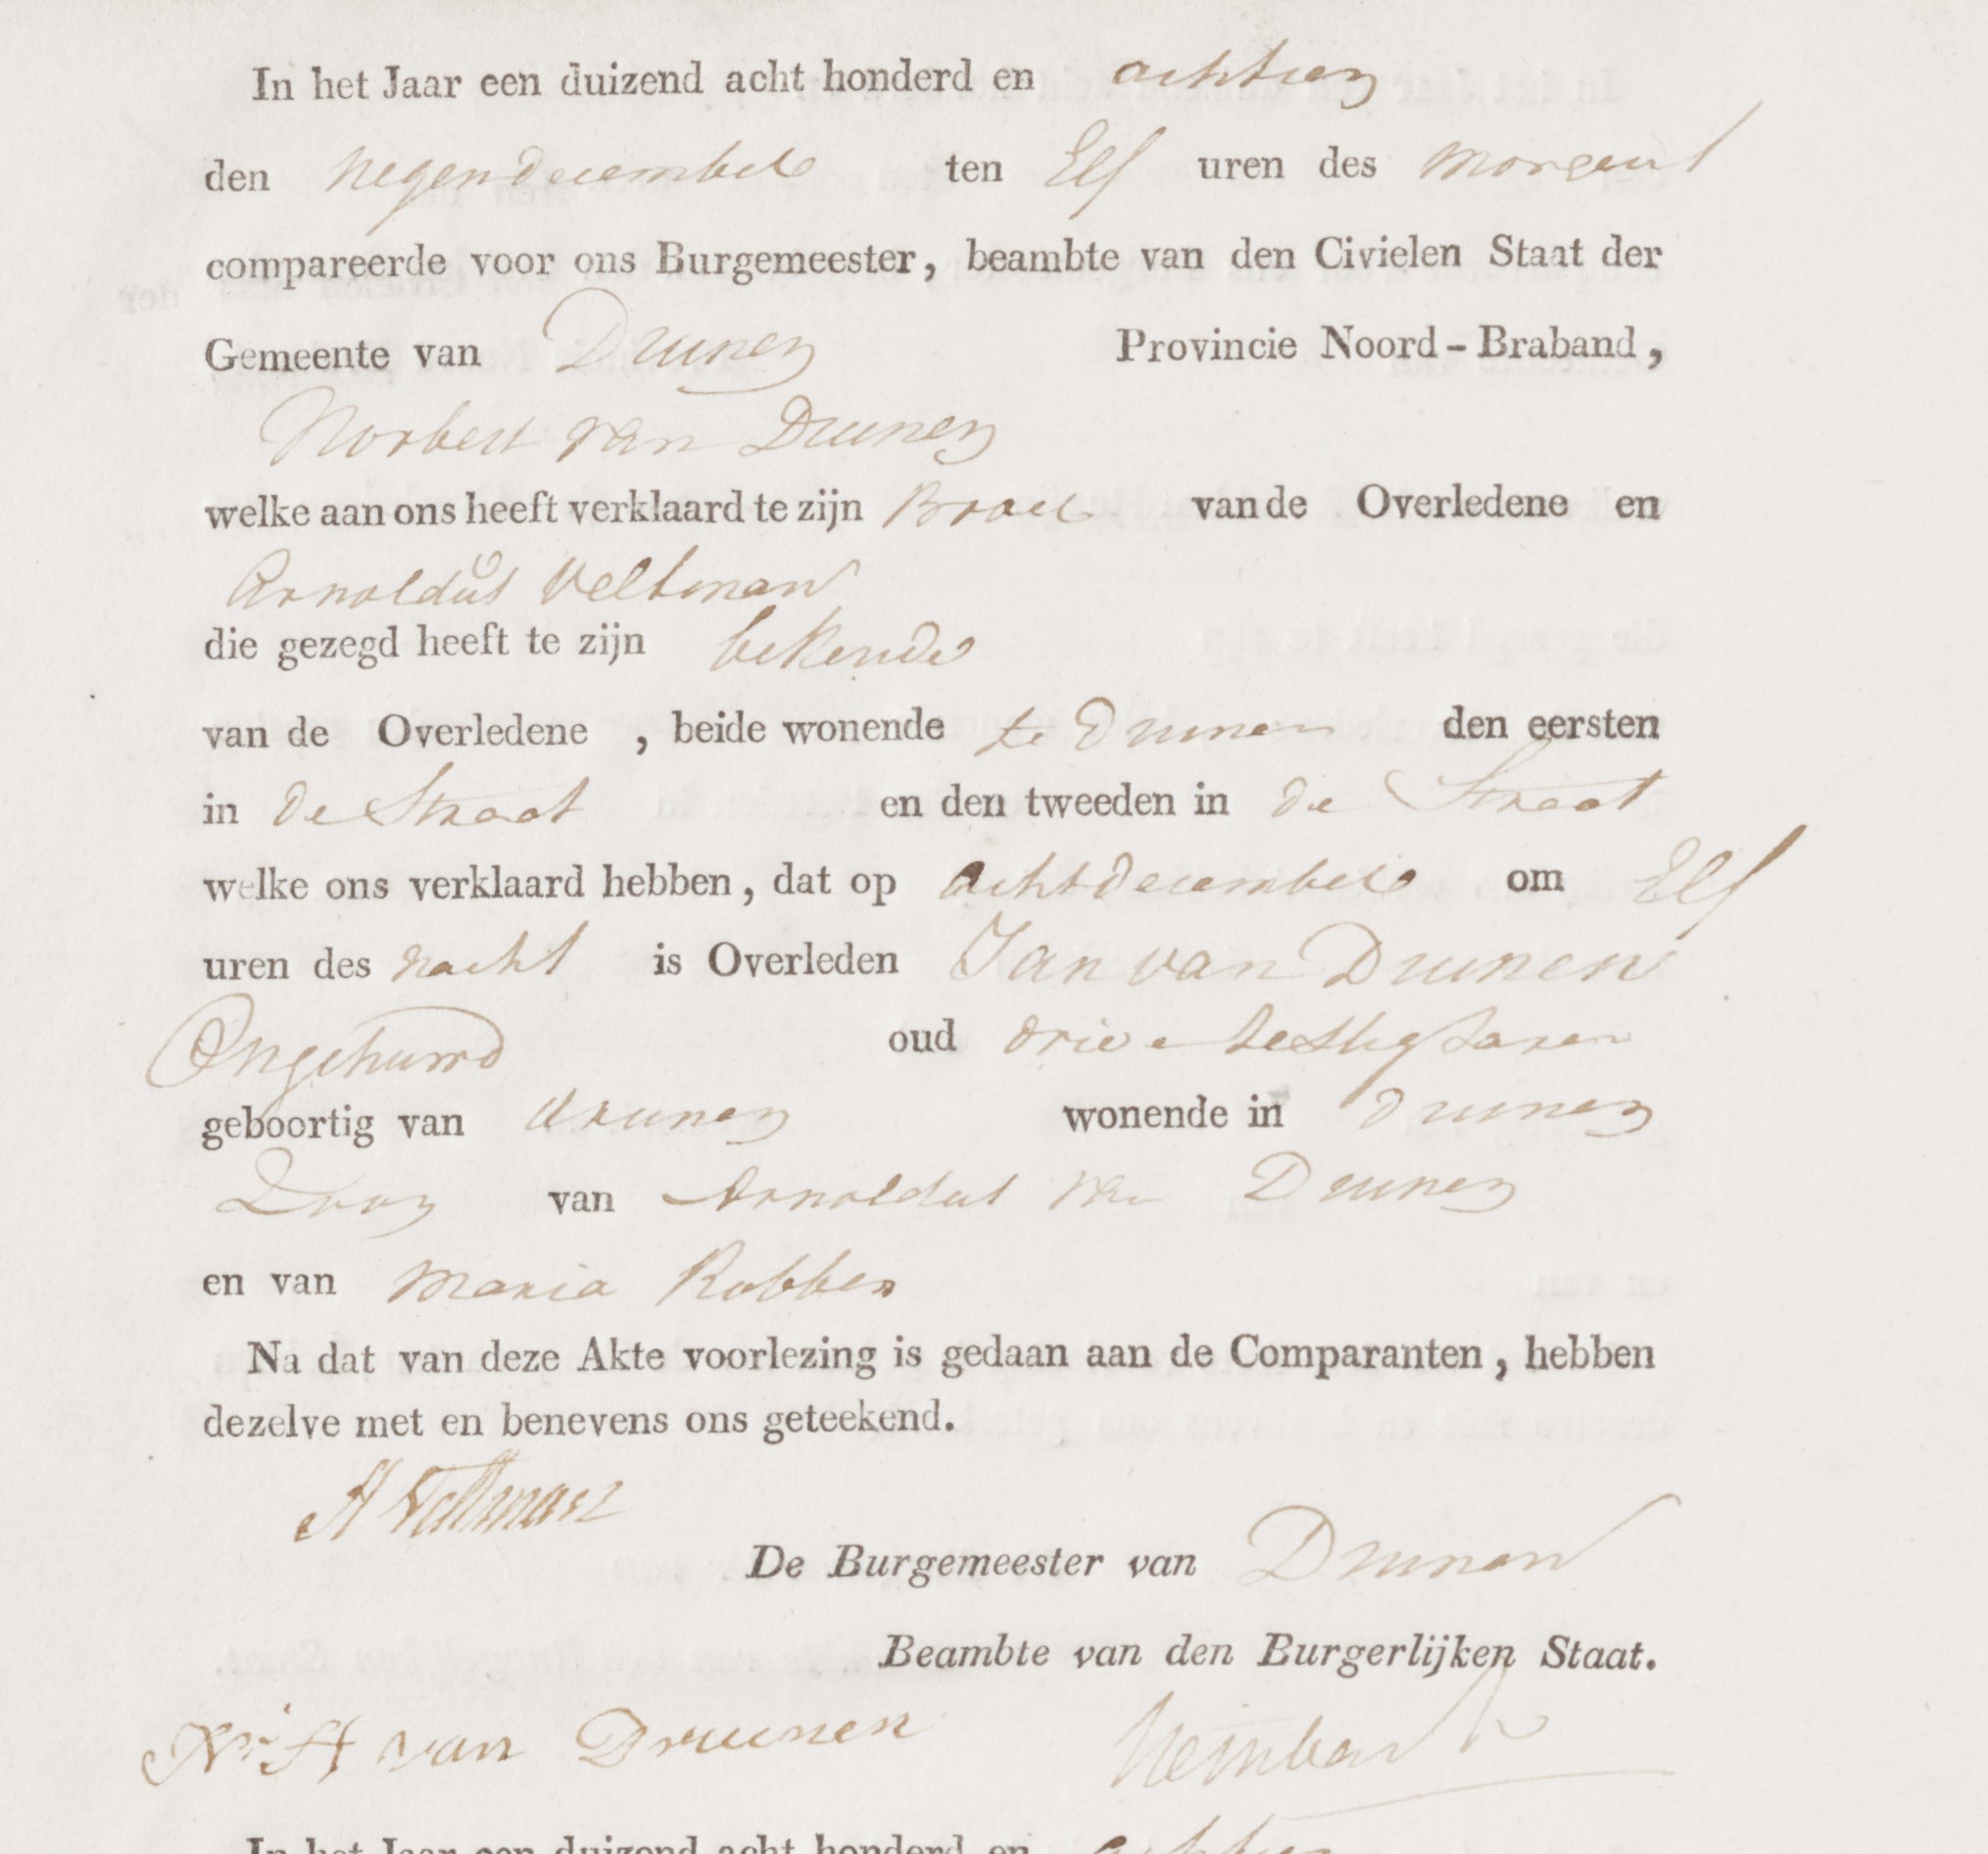 In het Jaar een duizend acht honderd en achtien
den negen december ten Elf uren des morgens
compareerde voor ons Burgemeester, beambte van den Civielen Staat der
Gemeente van Drunen Provincie Noord-Braband,
Norbert van Drunen
welke aan ons heeft verklaard te zijn Broer van de Overledene en
Arnoldus Veltman
die gezegd heeft te zijn bekende
van de Overledene, beide wonende te Drunen den eersten
in de Straat en den tweeden in de Straat
welke ons verklaard hebben, dat op acht december om Elf
uren des nacht is Overleden Jan van Drunen
Ongehuwd oud drie e Jaren
geboortig van Drunen wonende in Drunen
Zoon van Arnoldus van Drunen
en van Maria Robben
Na dat van deze Akte voorlezing is gedaan aan de Comparanten, hebben
dezelve met en benevens ons geteekend.
A Veltman
De Burgemeester van Drunen
Beambte van den Burgerlijken Staat.
van Drunen
In het Jaar een duizend acht honderd en achtien